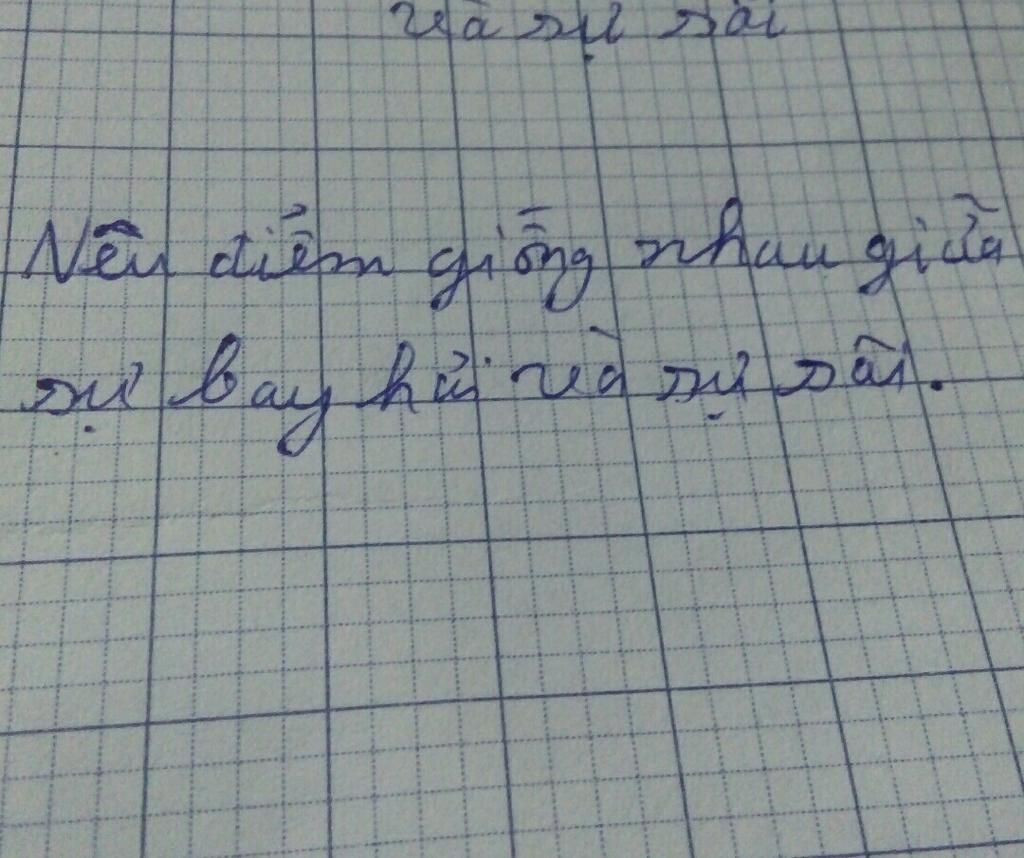 và sự sôi
Nêu điểm giống nhau giữa
sự bay hơi và sự sôi.